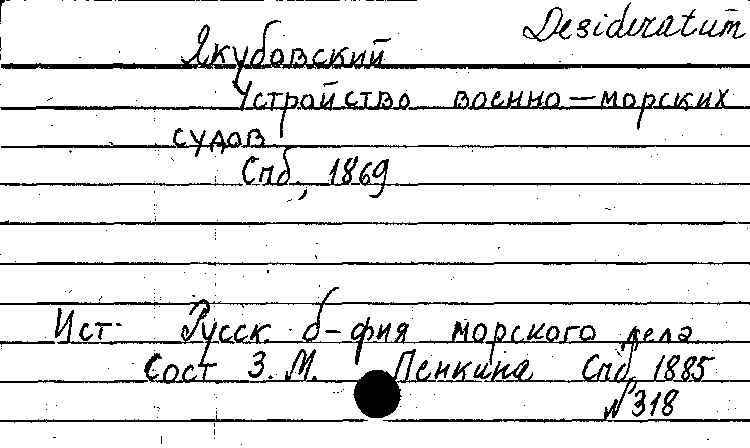 Desideratum
Якубовский
Устройство военно-морских
судов
Спб, 1869
Ист. Русск. б-фия морского дела
Сост З. М. Пенкина Спб, 1885
№318